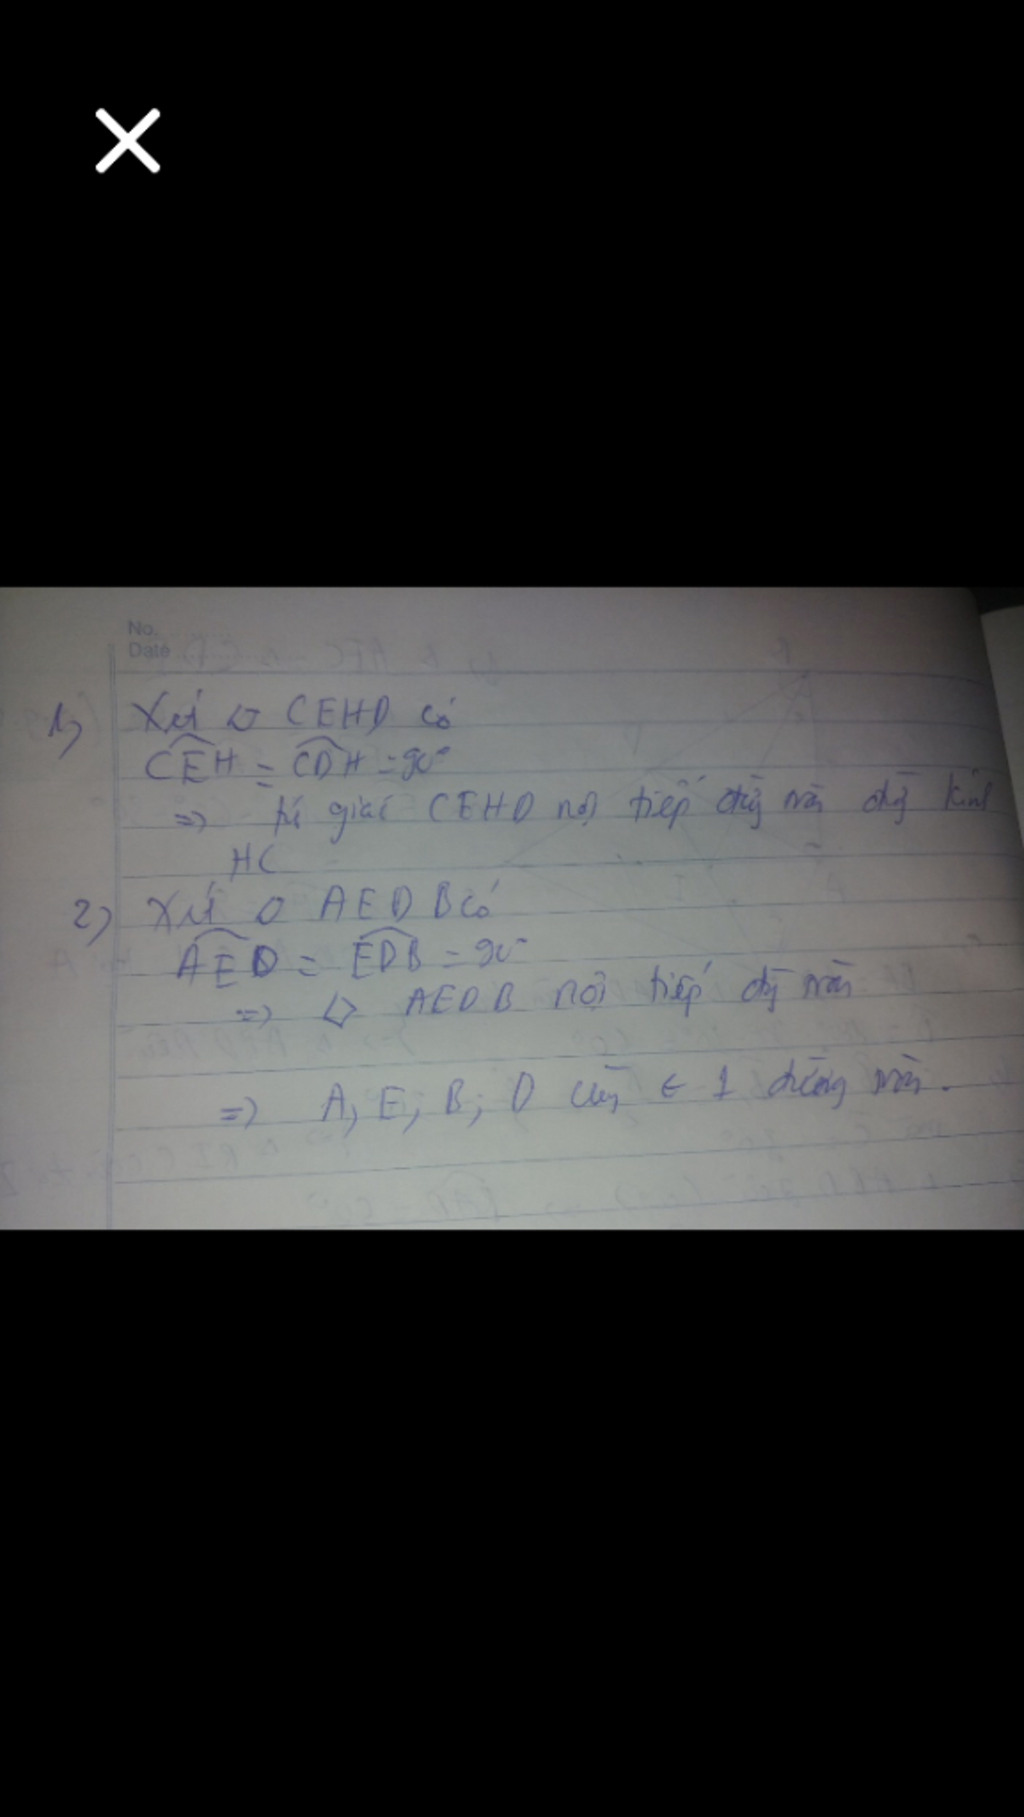 No.
Date
1) Xét ▱ CEHD có
CEH = CDH = 90°
=> tứ giác CEHD nội tiếp đg tròn đg kính
HC
2) Xét ◇ AEDB có
AED = EDB = 90°
=> ◇ AEDB nội tiếp đg tròn
=> A, E, B, D cùng ∈ 1 đường tròn.